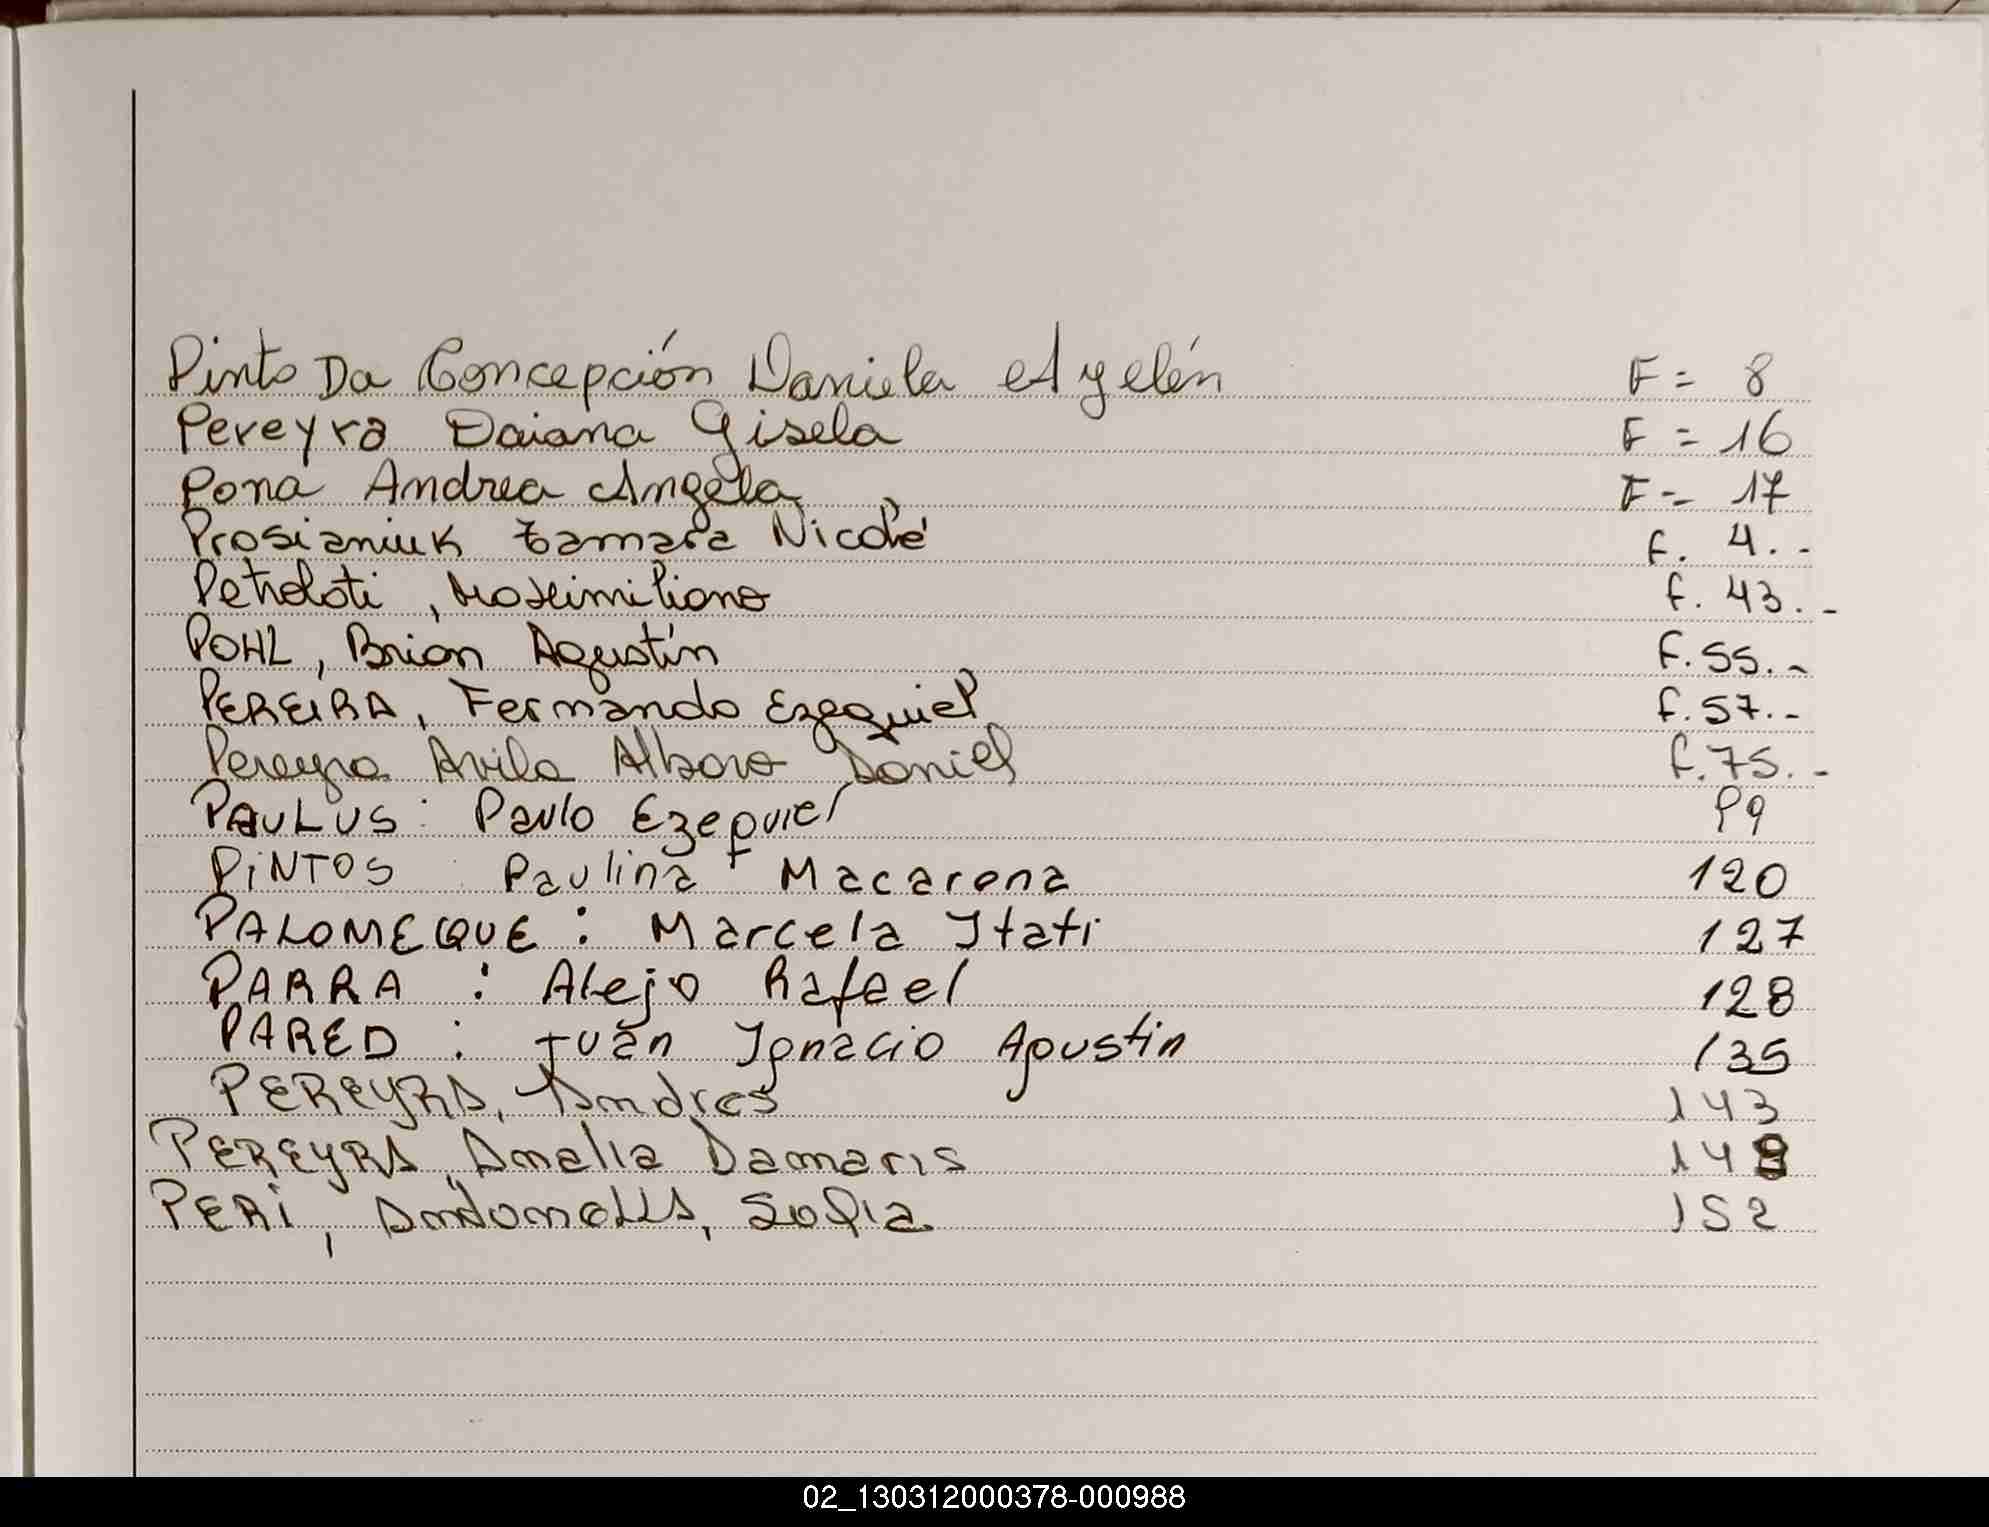 Pinto Da Concepción Daniela Ayelén F = 8
Pereyra Daiana Gisela F = 16
Pona Andrea Angela F = 17
Prosianiuk Tamara Nicole F. 4.-
Petroloti, Maximiliano F. 43.-
POHL, Brian Agustín F. 55.-
PEREIRA, Fernando Ezequiel F. 57.-
Pereyra Avila Alvaro Daniel F. 75.-
PAULUS: Paulo Ezequiel 99
PiNTOS : Paulina Macarena 120
PALOMEQUE : Marcela Itati 127
PARRA : Alejo Rafael 128
PARED : Juan Ignacio Agustin 135
PEREYRA, Andres 143
PEREYRA, Amalia Damaris 148
PERi, Sofia 152
02_130312000378-000988